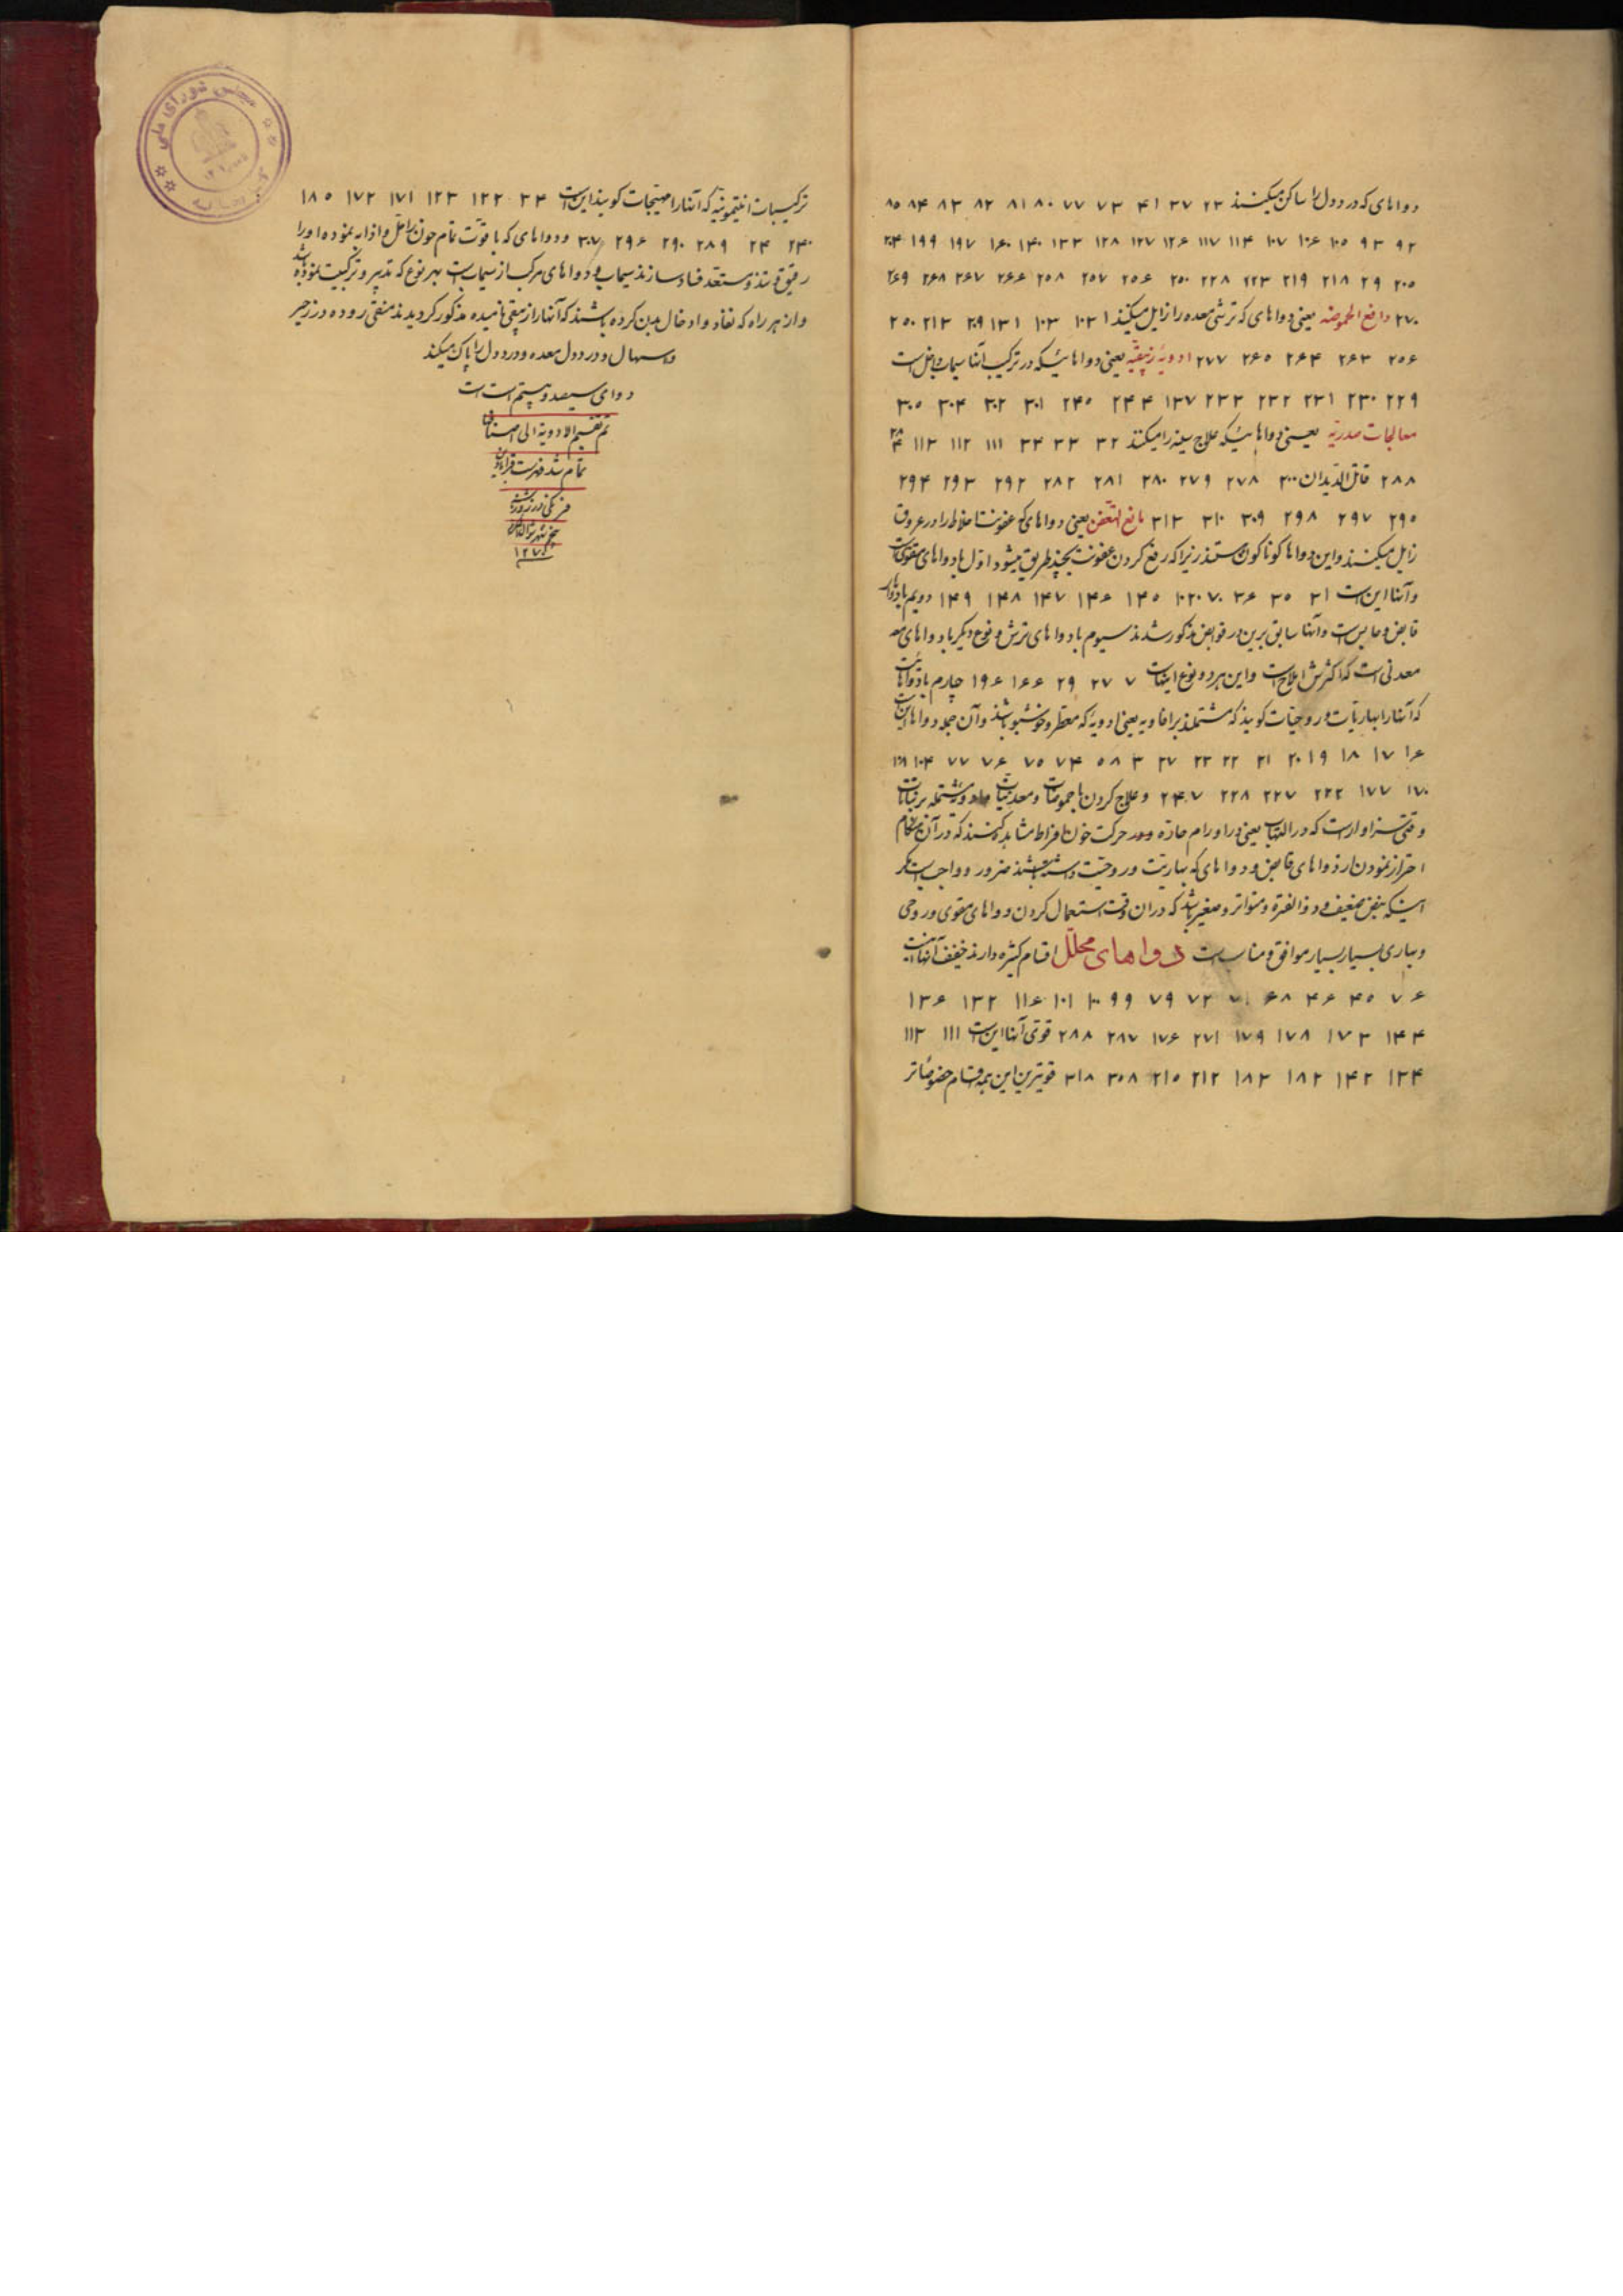 دواهای که درد دل را ساکن میکنند ۲۳ ۲۷ ۴۱ ۷۳ ۷۷ ۸۰ ۸۱ ۸۲ ۸۳ ۸۴ ۸۵
۹۲ ۹۳ ۱۰۵ ۱۰۶ ۱۰۷ ۱۱۴ ۱۱۷ ۱۲۶ ۱۲۷ ۱۲۸ ۱۳۳ ۱۴۰ ۱۶۰ ۱۹۷ ۱۹۹
۲۰۵ ۲۹ ۲۱۸ ۲۱۹ ۲۲۳ ۲۲۸ ۲۵۰ ۲۵۶ ۲۵۷ ۲۵۸ ۲۶۶ ۲۶۷ ۲۶۸ ۲۶۹
۲۷۰ دافع الحموضه یعنی دواهای که ترشی معده را زایل میکنند ۱۰۲ ۱۰۳ ۱۳۱ ۲۰۹ ۲۱۳ ۲۵۰
۲۵۶ ۲۶۳ ۲۶۴ ۲۶۵ ۲۷۷ ادویهٔ زیبقیه یعنی دواهائیکه در ترکیب آنها سیماب داخل است
۲۲۹ ۲۳۰ ۲۳۱ ۲۳۲ ۲۳۳ ۱۳۷ ۲۴۴ ۲۴۵ ۳۰۱ ۳۰۲ ۳۰۴ ۳۰۵
معالجات صدریه یعنی دواهائیکه علاج سینه را میکنند ۳۲ ۳۳ ۳۴ ۱۱۱ ۱۱۲ ۱۱۳
۲۸۸ قاتل الدیدان ۲۰۰ ۲۷۸ ۲۷۹ ۲۸۰ ۲۸۱ ۲۸۲ ۲۹۲ ۲۹۳ ۲۹۴
۲۹۵ ۲۹۷ ۲۹۸ ۳۰۹ ۳۱۰ ۳۱۳ مانع التعفن یعنی دواهای که عفونت اخلاط را در عروق
زایل میکنند و این دواها کوناکون هستند زیرا که رفع کردن عفونت بچند طریق میشود اول با دواهای مقوی است
و آنها این است ۳۱ ۳۵ ۳۶ ۷۰ ۱۰۲ ۱۴۵ ۱۴۶ ۱۴۷ ۱۴۸ ۱۴۹ دویم با دواهای
قابض و حابس است و آنها سابق برین در قوابض مذکور شدند سیوم با دواهای ترش و نوع دیگر با دواهای
معدنی است که اکثرش املاح است و این هر دو نوع اینهاست ۷ ۲۷ ۲۹ ۱۶۶ ۱۹۶ چهارم با دواهائیست
که آنها را بهاریات و روحیات کویند که مشتملند بر افاویه یعنی ادویهٔ که معطر و خوشبو باشند و آن جمله دواها این است
۱۶ ۱۷ ۱۸ ۱۹ ۲۰ ۲۱ ۲۲ ۲۳ ۲۷ ۳ ۵۸ ۷۴ ۷۵ ۷۶ ۷۷ ۱۰۴
۱۷۰ ۱۷۷ ۲۲۲ ۲۲۷ ۲۲۸ ۲۴۷ و علاج کردن با حموضات و معدنیات مشتمله بر نباتات
وقتی سزاوارست که در التهاب یعنی در اورام حاره و در حرکت خون افراط مشاهده کنند که در آن هنگام
احتراز نمودن از دواهای قابض و دواهای که بهاریت و روحیت داشته باشند ضرور و واجب است مگر
اینکه نبض ضعیف و ذو الفتره و متواتر و صغیر باشد که در ان وقت استعمال کردن دواهای مقوی و روحی
و بهاری بسیار بسیار موافق و مناسب است دواهای محلل اقسام کثیره دارند خفیف آنها اینست
۶ ۷ ۴۵ ۴۶ ۶۸ ۷۱ ۷۲ ۷۹ ۹۹ ۱۰۰ ۱۰۱ ۱۱۶ ۱۳۲ ۱۳۶
۱۴۴ ۱۷۳ ۱۷۸ ۱۷۹ ۲۷۱ ۱۷۶ ۲۸۷ ۲۸۸ قوی آنها این است ۱۱۱ ۱۱۳
۱۳۴ ۱۴۲ ۱۸۲ ۱۸۳ ۲۱۲ ۲۱۵ ۳۰۸ ۳۱۸ قویترین این همه اقسام خصوصا
ترکیبات انتیمونیه که آنها را مهیجات کویند این است ۳۴ ۱۲۲ ۱۲۳ ۱۷۱ ۱۷۲ ۱۸۵
۲۴۰ ۲۴ ۲۸۹ ۲۹۰ ۲۹۶ ۳۰۷ و دواهای که با قوت تمام خون را حل و اذابه نموده او را
رقیق و مستعد فساد سازند سیماب و دواهای مرکب از سیماب است بهر نوع که تدبیر و ترکیب نموده باشند
و از هر راه که نفاذ و ادخال بدن کرده باشند که آنها را زیبقی نامیده مذکور کردیدند منقی روده در زحیر
و اسهال و درد دل معده و درد دل را پاک میکند
دوای سیصد و بیستم است
تم تقسیم الادویة الی اصناف
تمام شد فهرست قرابادین
فرنگی در روز
پنج شهر شوال
۱۲۷
مجلس شورای ملی
کتابخانه